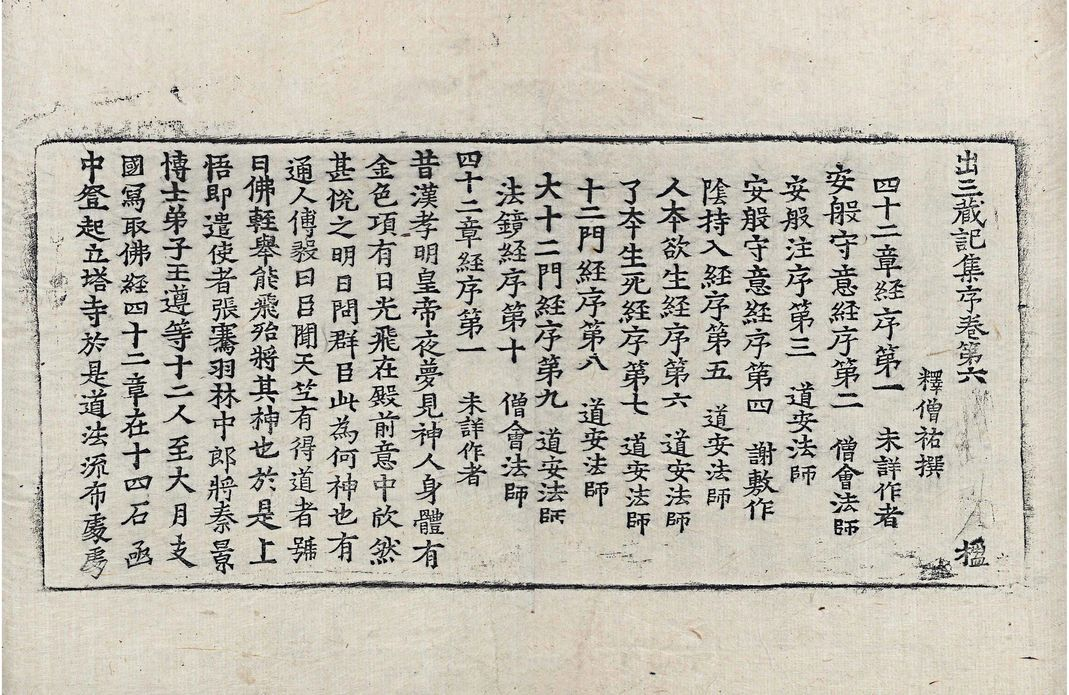 出三藏記集序卷第六 楹
釋僧祐撰
四十二章經序第一 未詳作者
安般守意經序第二 僧會法師
安般注序第三 道安法師
安般守意經序第四 謝敷作
陰持入經序第五 道安法師
人本欲生經序第六 道安法師
了本生死經序第七 道安法師
十二門經序第八 道安法師
大十二門經序第九 道安法師
法鏡經序第十 僧會法師
四十二章經序第一 未詳作者
昔漢孝明皇帝夜夢見神人身體有
金色項有日光飛在殿前意中欣然
甚恱之明日問群臣此為何神也有
通人傅毅曰臣聞天竺有得道者號
曰佛輕舉能飛殆將其神也於是上
悟即遣使者張騫羽林中郎將秦景
博士弟子王遵等十二人至大月支
國寫取佛經四十二章在十四石函
中登起立塔寺於是道法流布處處